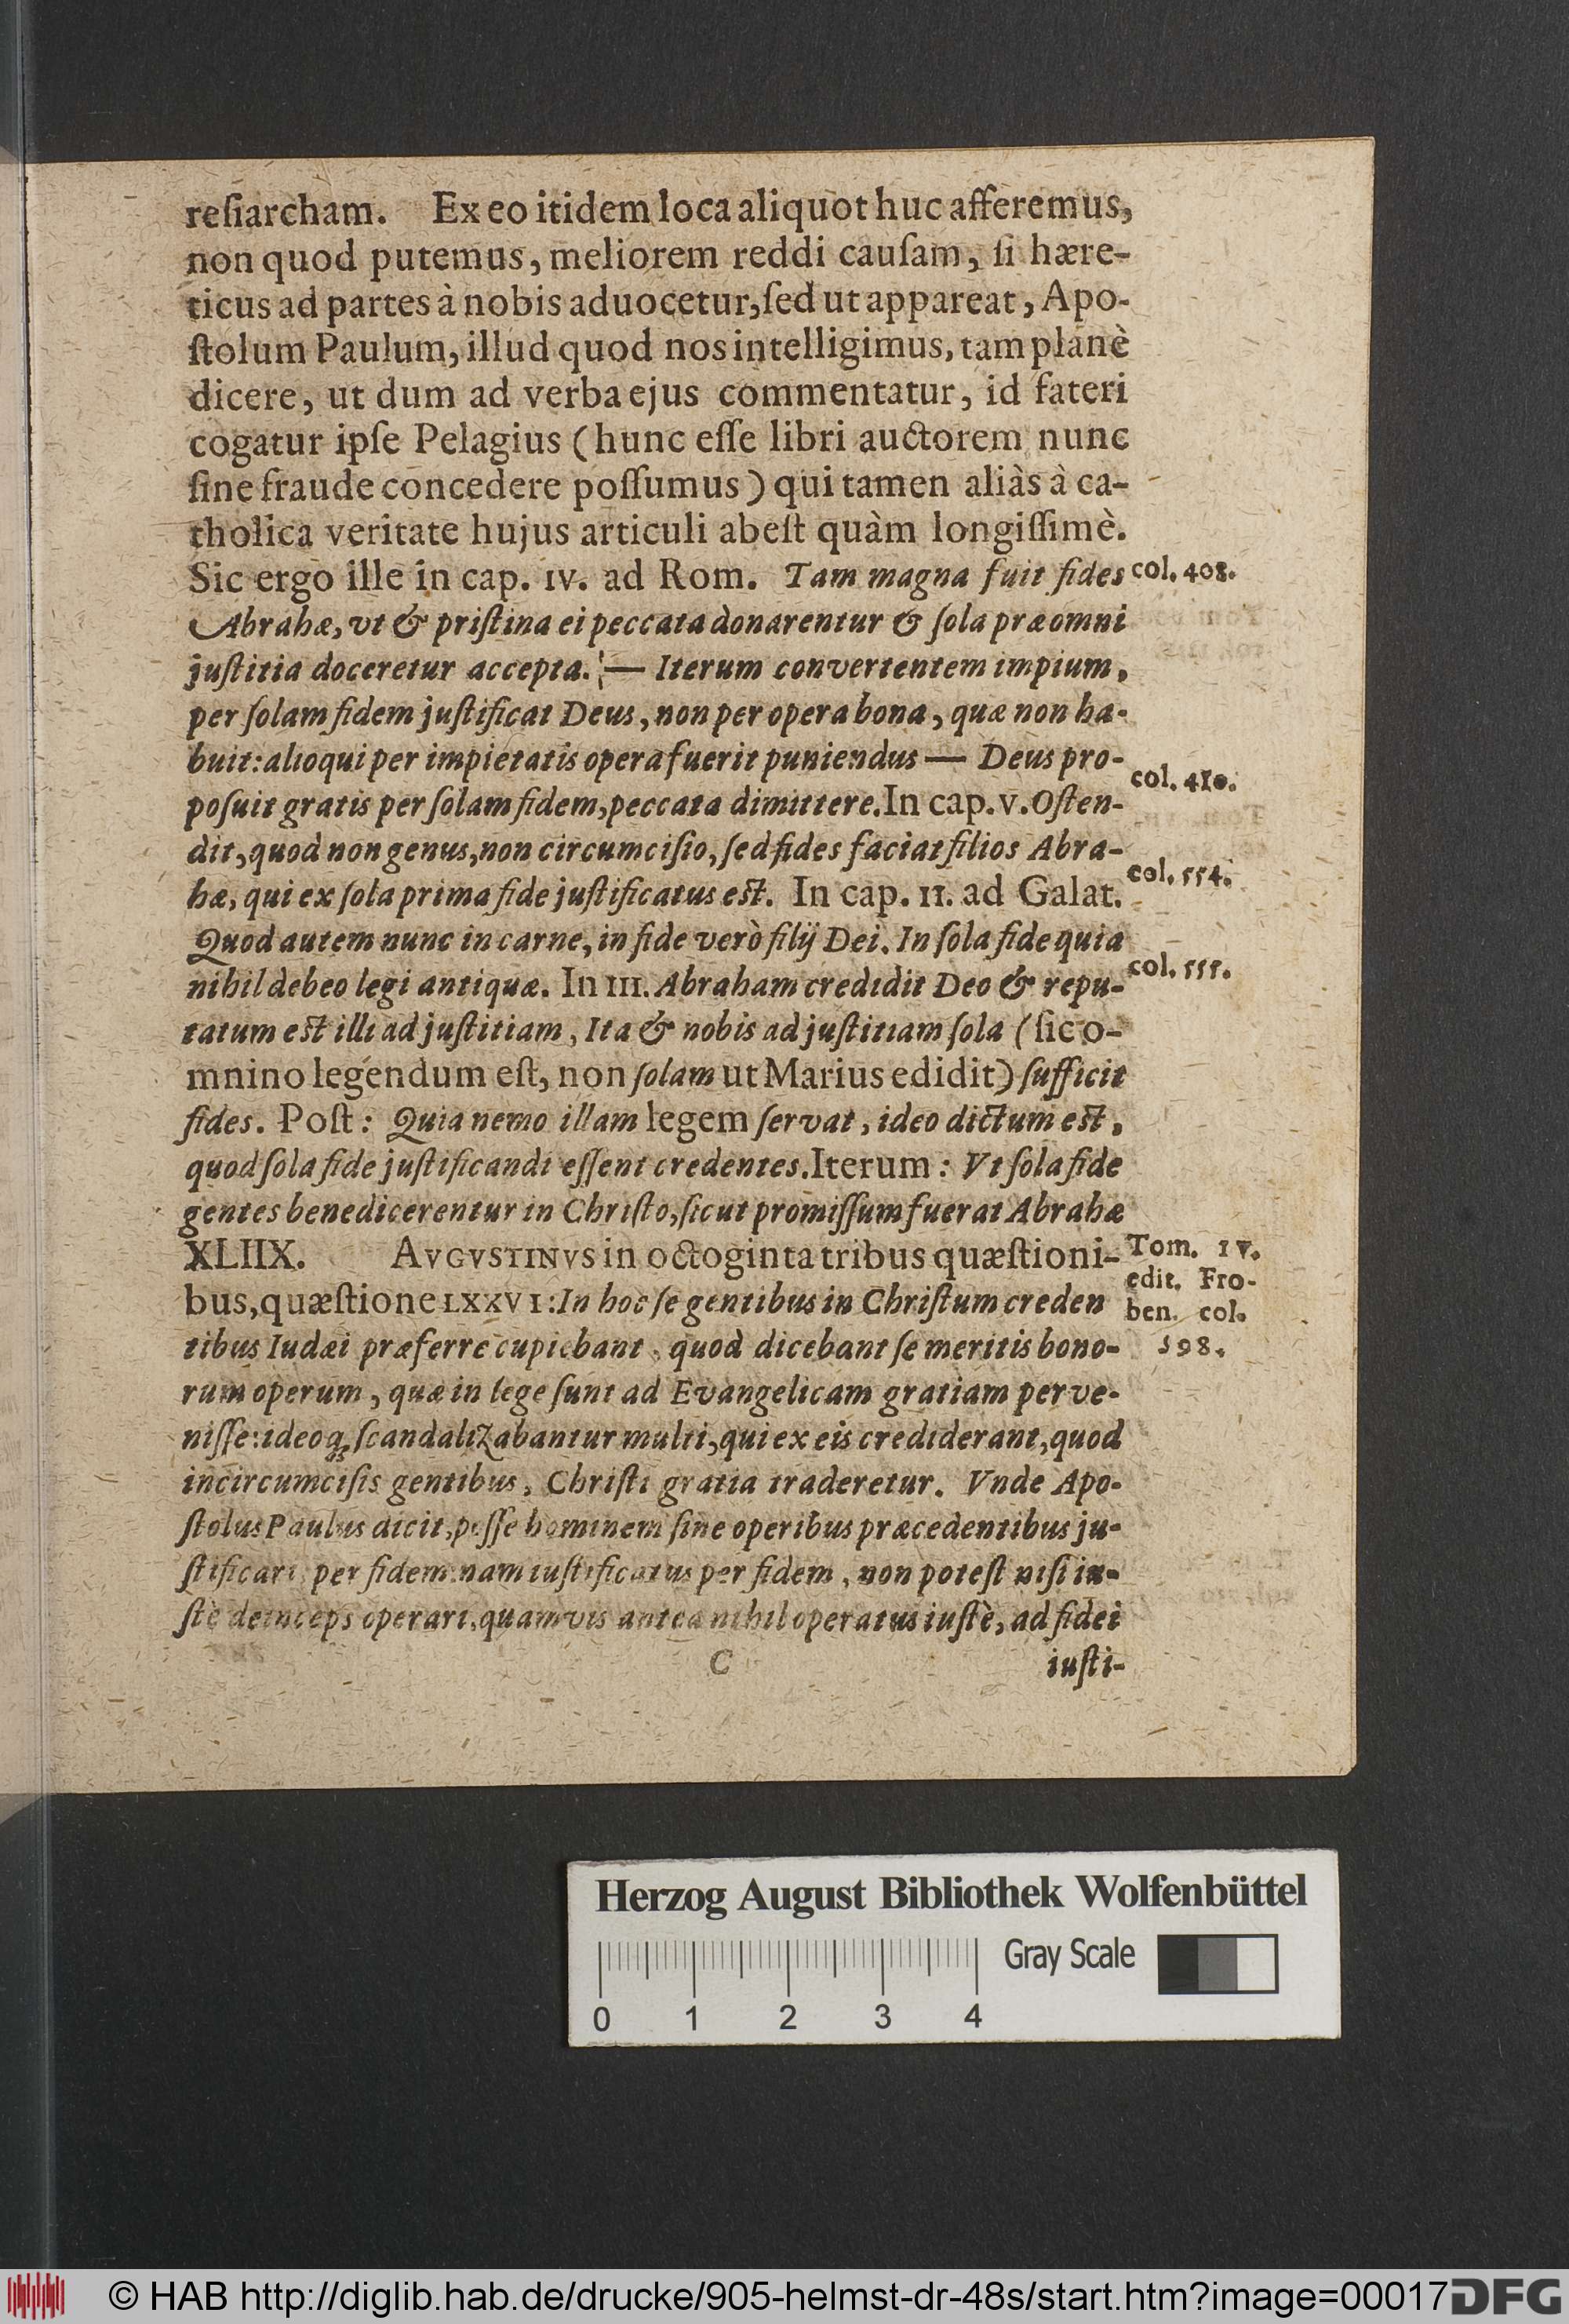 reſiarcham. Ex eo itidem loca aliquot huc afferemus,
non quod putemus, meliorem reddi cauſam, ſi hære-
ticus ad partes à nobis aduocetur, ſed ut appareat, Apo-
ſtolum Paulum, illud quod nos intelligimus, tam planè
dicere, ut dum ad verba ejus commentatur, id fateri
cogatur ipſe Pelagius (hunc eſſe libri auctorem nunc
ſine fraude concedere poſſumus) qui tamen aliàs à ca-
tholica veritate hujus articuli abeſt quàm longiſſimè.
Sic ergo ille in cap. IV. ad Rom. Tam magna fuit fides
col. 408.
Abrahæ, vt & priſtina ei peccata donarentur & ſola præ omni
juſtitia doceretur accepta. — Iterum convertentem impium,
per ſolam fidem juſtificat Deus, non per opera bona, quæ non ha-
buit: alioqui per impietatis opera fuerit puniendus — Deus pro-
col. 410.
poſuit gratis per ſolam fidem, peccata dimittere. In cap. V. Oſten-
dit, quod non genus, non circumciſio, ſed fides faciat filios Abra-
col. 554.
hæ, qui ex ſola prima fide juſtificatus eſt. In cap. II. ad Galat.
Quod autem nunc in carne, in fide verò filij Dei. In ſola fide quia
col. 555.
nihil debeo legi antiquæ. In III. Abraham credidit Deo & repu-
tatum eſt illi ad juſtitiam, Ita & nobis ad juſtitiam ſola (ſic o-
mnino legendum eſt, non ſolam ut Marius edidit) ſufficit
fides. Poſt: Quia nemo illam legem ſervat, ideo dictum eſt,
quod ſola fide juſtificandi eſſent credentes. Iterum: Vt ſola fide
gentes benedicerentur in Chriſto, ſicut promiſſum fuerat Abrahæ
XLIIX. AVGVSTINVS in octoginta tribus quæſtioni-
Tom. IV.
edit. Fro-
ben. col.
598.
bus, quæſtione LXXVI: In hoc ſe gentibus in Chriſtum creden
tibus Iudæi præferre cupiebant, quod dicebant ſe meritis bono-
rum operum, quæ in lege ſunt ad Evangelicam gratiam perve-
niſſe: ideoq; ſcandalizabantur multi, qui ex eis crediderant, quod
incircumciſis gentibus, Chriſti gratia traderetur. Vnde Apo-
ſtolus Paulus dicit, poſſe hominem ſine operibus præcedentibus ju-
ſtificari per fidem. nam iuſtificatus per fidem, non poteſt niſi iu-
ſtè deinceps operari, quamvis antea nihil operatus iuſtè, ad fidei
C
iuſti-
Herzog August Bibliothek Wolfenbüttel
Gray Scale
0 1 2 3 4
© HAB http://diglib.hab.de/drucke/905-helmst-dr-48s/start.htm?image=00017
DFG